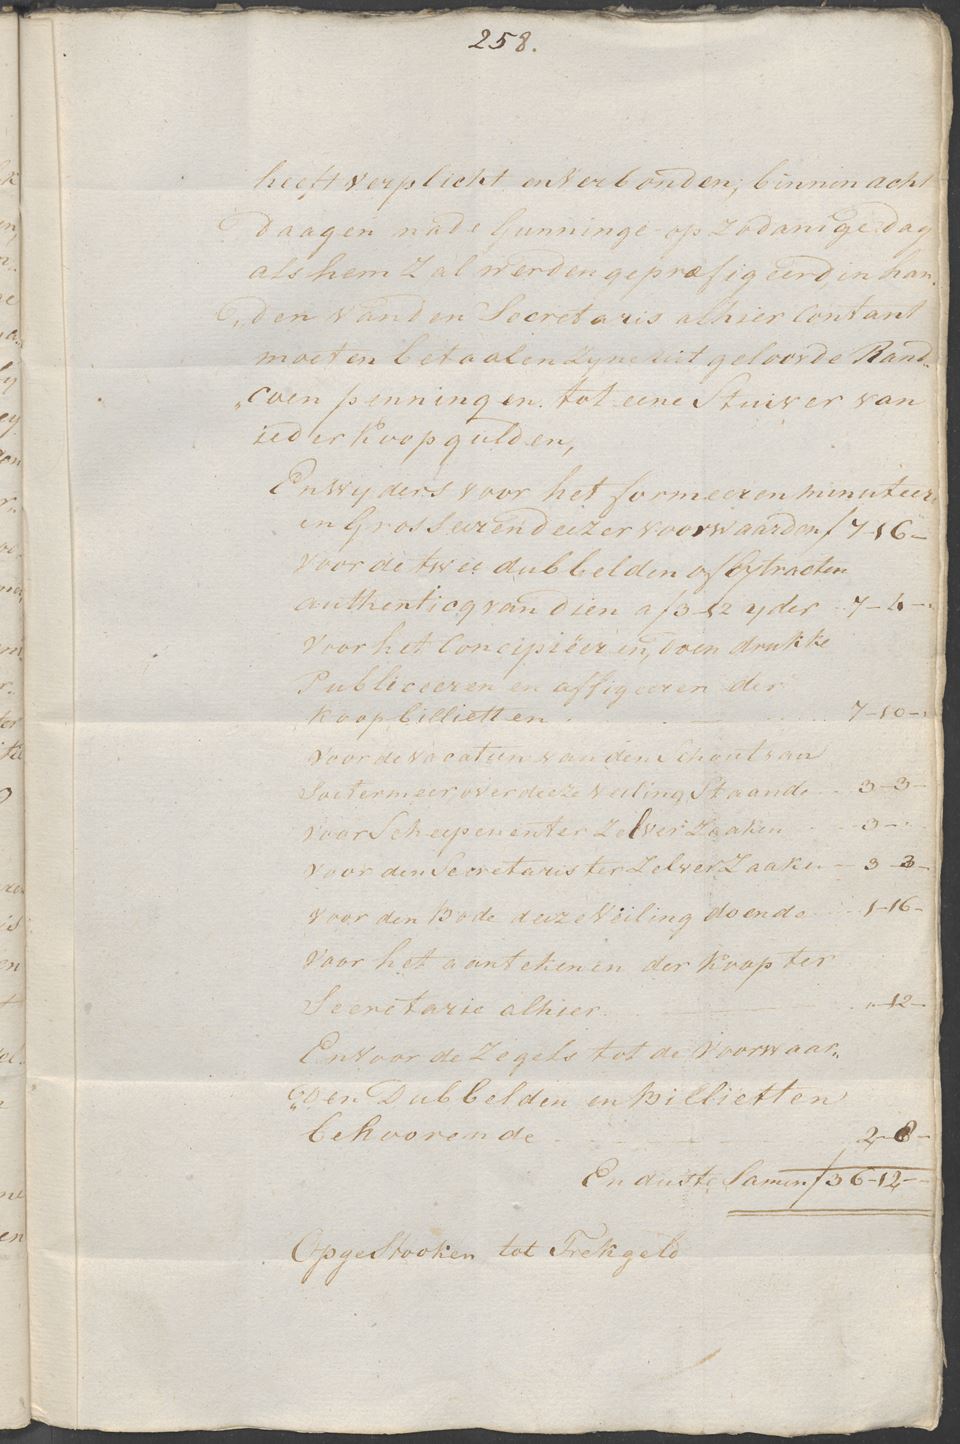 258.
heeft verplicht en verbonden, binnen acht
daagen na de Gunninge op Zodanige dag
als hem Zal werden gepræfigeerd, in han„
„den vanden Secretaris alhier Contant
moeten betaalen Zyne uit geloofde Rand„
„coen penningen. tot eene Stuiver van
ieder koop gulden,
En wijders voor het formeeren minuteere
en Grosseeren deezer voorwaarden ƒ 7-16-
Voor de twee dubbelden of Extracten
authenticq van dien a ƒ3-12 yder 7-4-
Voor het Concipiëeren, doen drukke
Publiceeren en affigeeren der
koopbillietten 7-10-
Voor de vacatien van den Schout van
Soetermeer, over deeze veiling Staande 3-3-
voor Scheepenen ter Zelver Zaaken 3-
Voor den Secretaris ter Zelver Zaake 3-3-
Voor den Bode deeze Veiling doende 1-16-
Voor het aantekenen der koop ter
Secretarie alhier „-12-
En voor de Zegels tot de Voorwaar„
„den Dubbelden en Billietten
behoorende 2-8-
En dus te Samen ƒ36-12-
Opgestooken tot Trekgeld